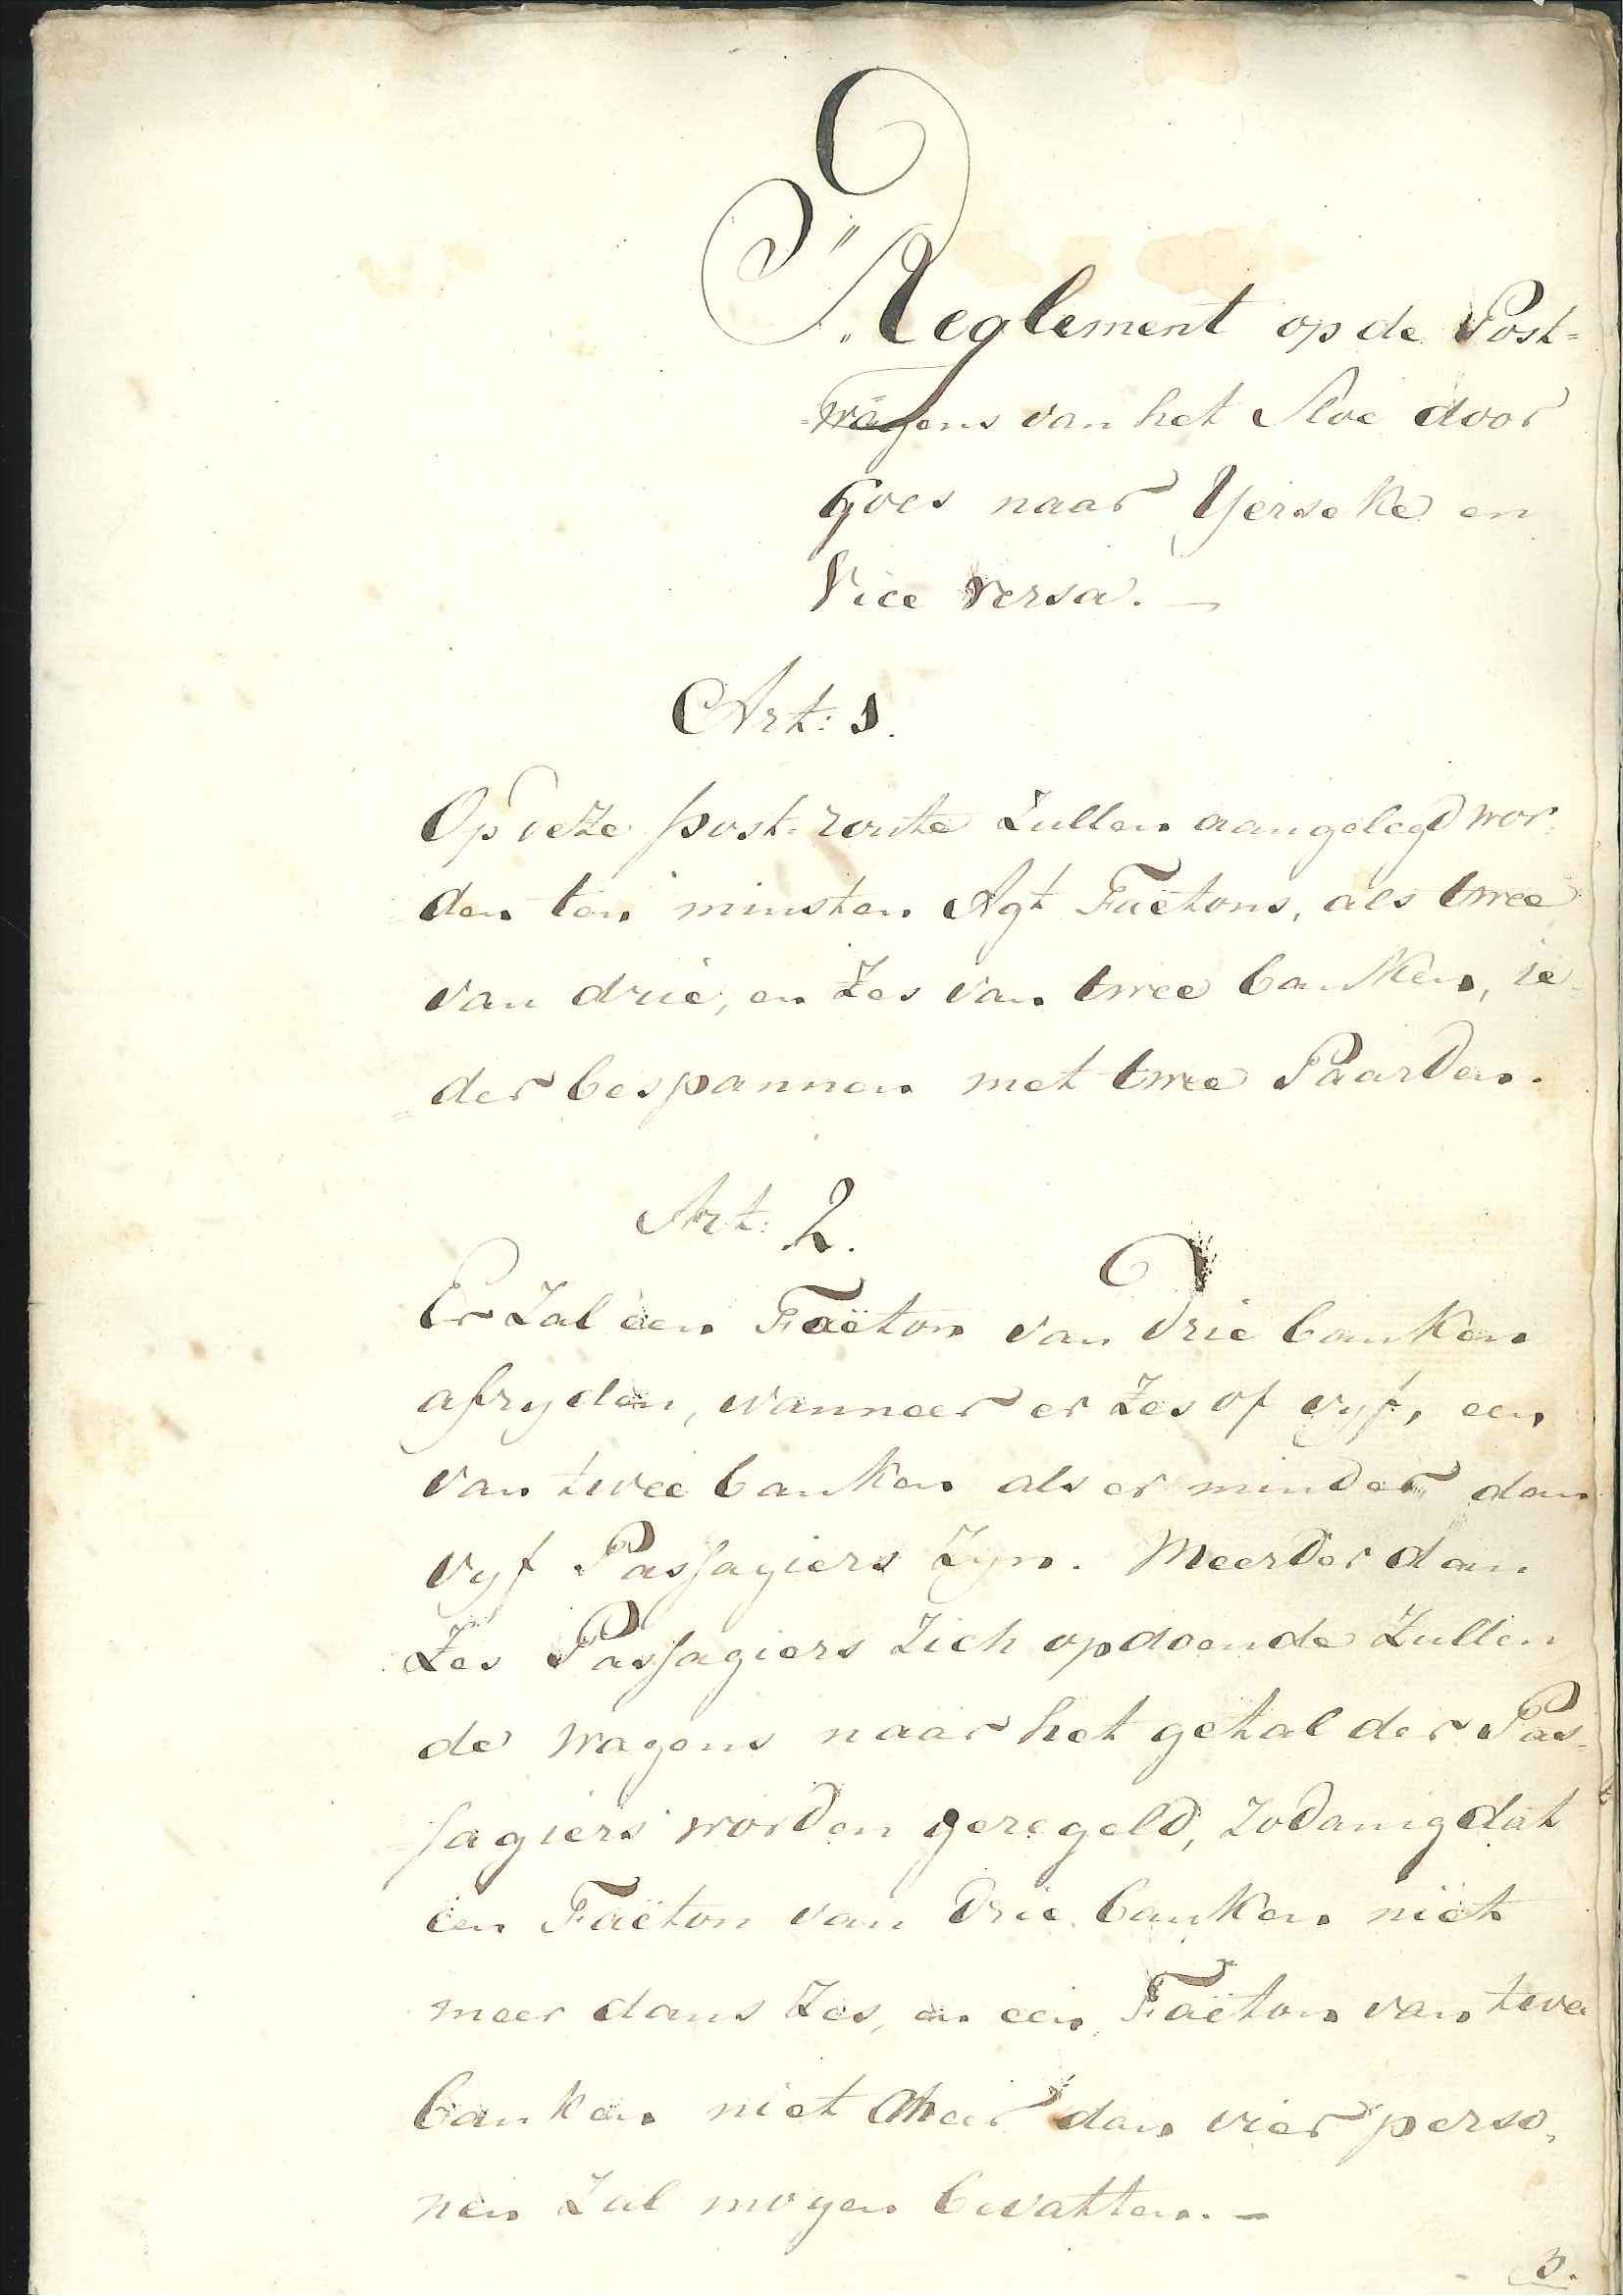 Reglement op de Post=
=wagens van het Sloe door
Goes naar Yerseke en
Vice versa. —
Art: 1.
Op deze post-route zullen aangelegd wor-
den ten minsten Agt Faëtons, als twee
van drie, en zes van twee banken, ie-
der bespannen met twee Paarden.
Art: 2.
Er zal een Faëton van drie banken
afryden, wanneer er zes of vyf, een
van twee banken als er minder dan
vyf Passagiers zyn. Meerder dan
zes Passagiers zich opdoende zullen
de wagens naar het getal der Pas-
sagiers worden geregeld, zodanig dat
een Faëton van drie banken niet
meer dans zes, en een Faëton van twee
banken niet meer dan vier perso-
nen zal mogen bevatten. —
3.